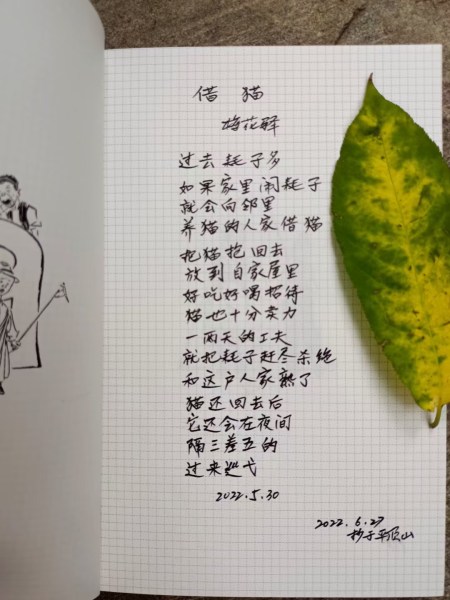 借猫
梅花驿
过去耗子多
如果家里闹耗子
就会向邻里
养猫的人家借猫
把猫抱回去
放到自家屋里
好吃好喝招待
猫也十分卖力
一两天的工夫
就把耗子赶尽杀绝
和这户人家熟了
猫还回去后
它还会在夜间
隔三差五的
过来巡弋
2022.5.30
2022.6.27
抄于平顶山